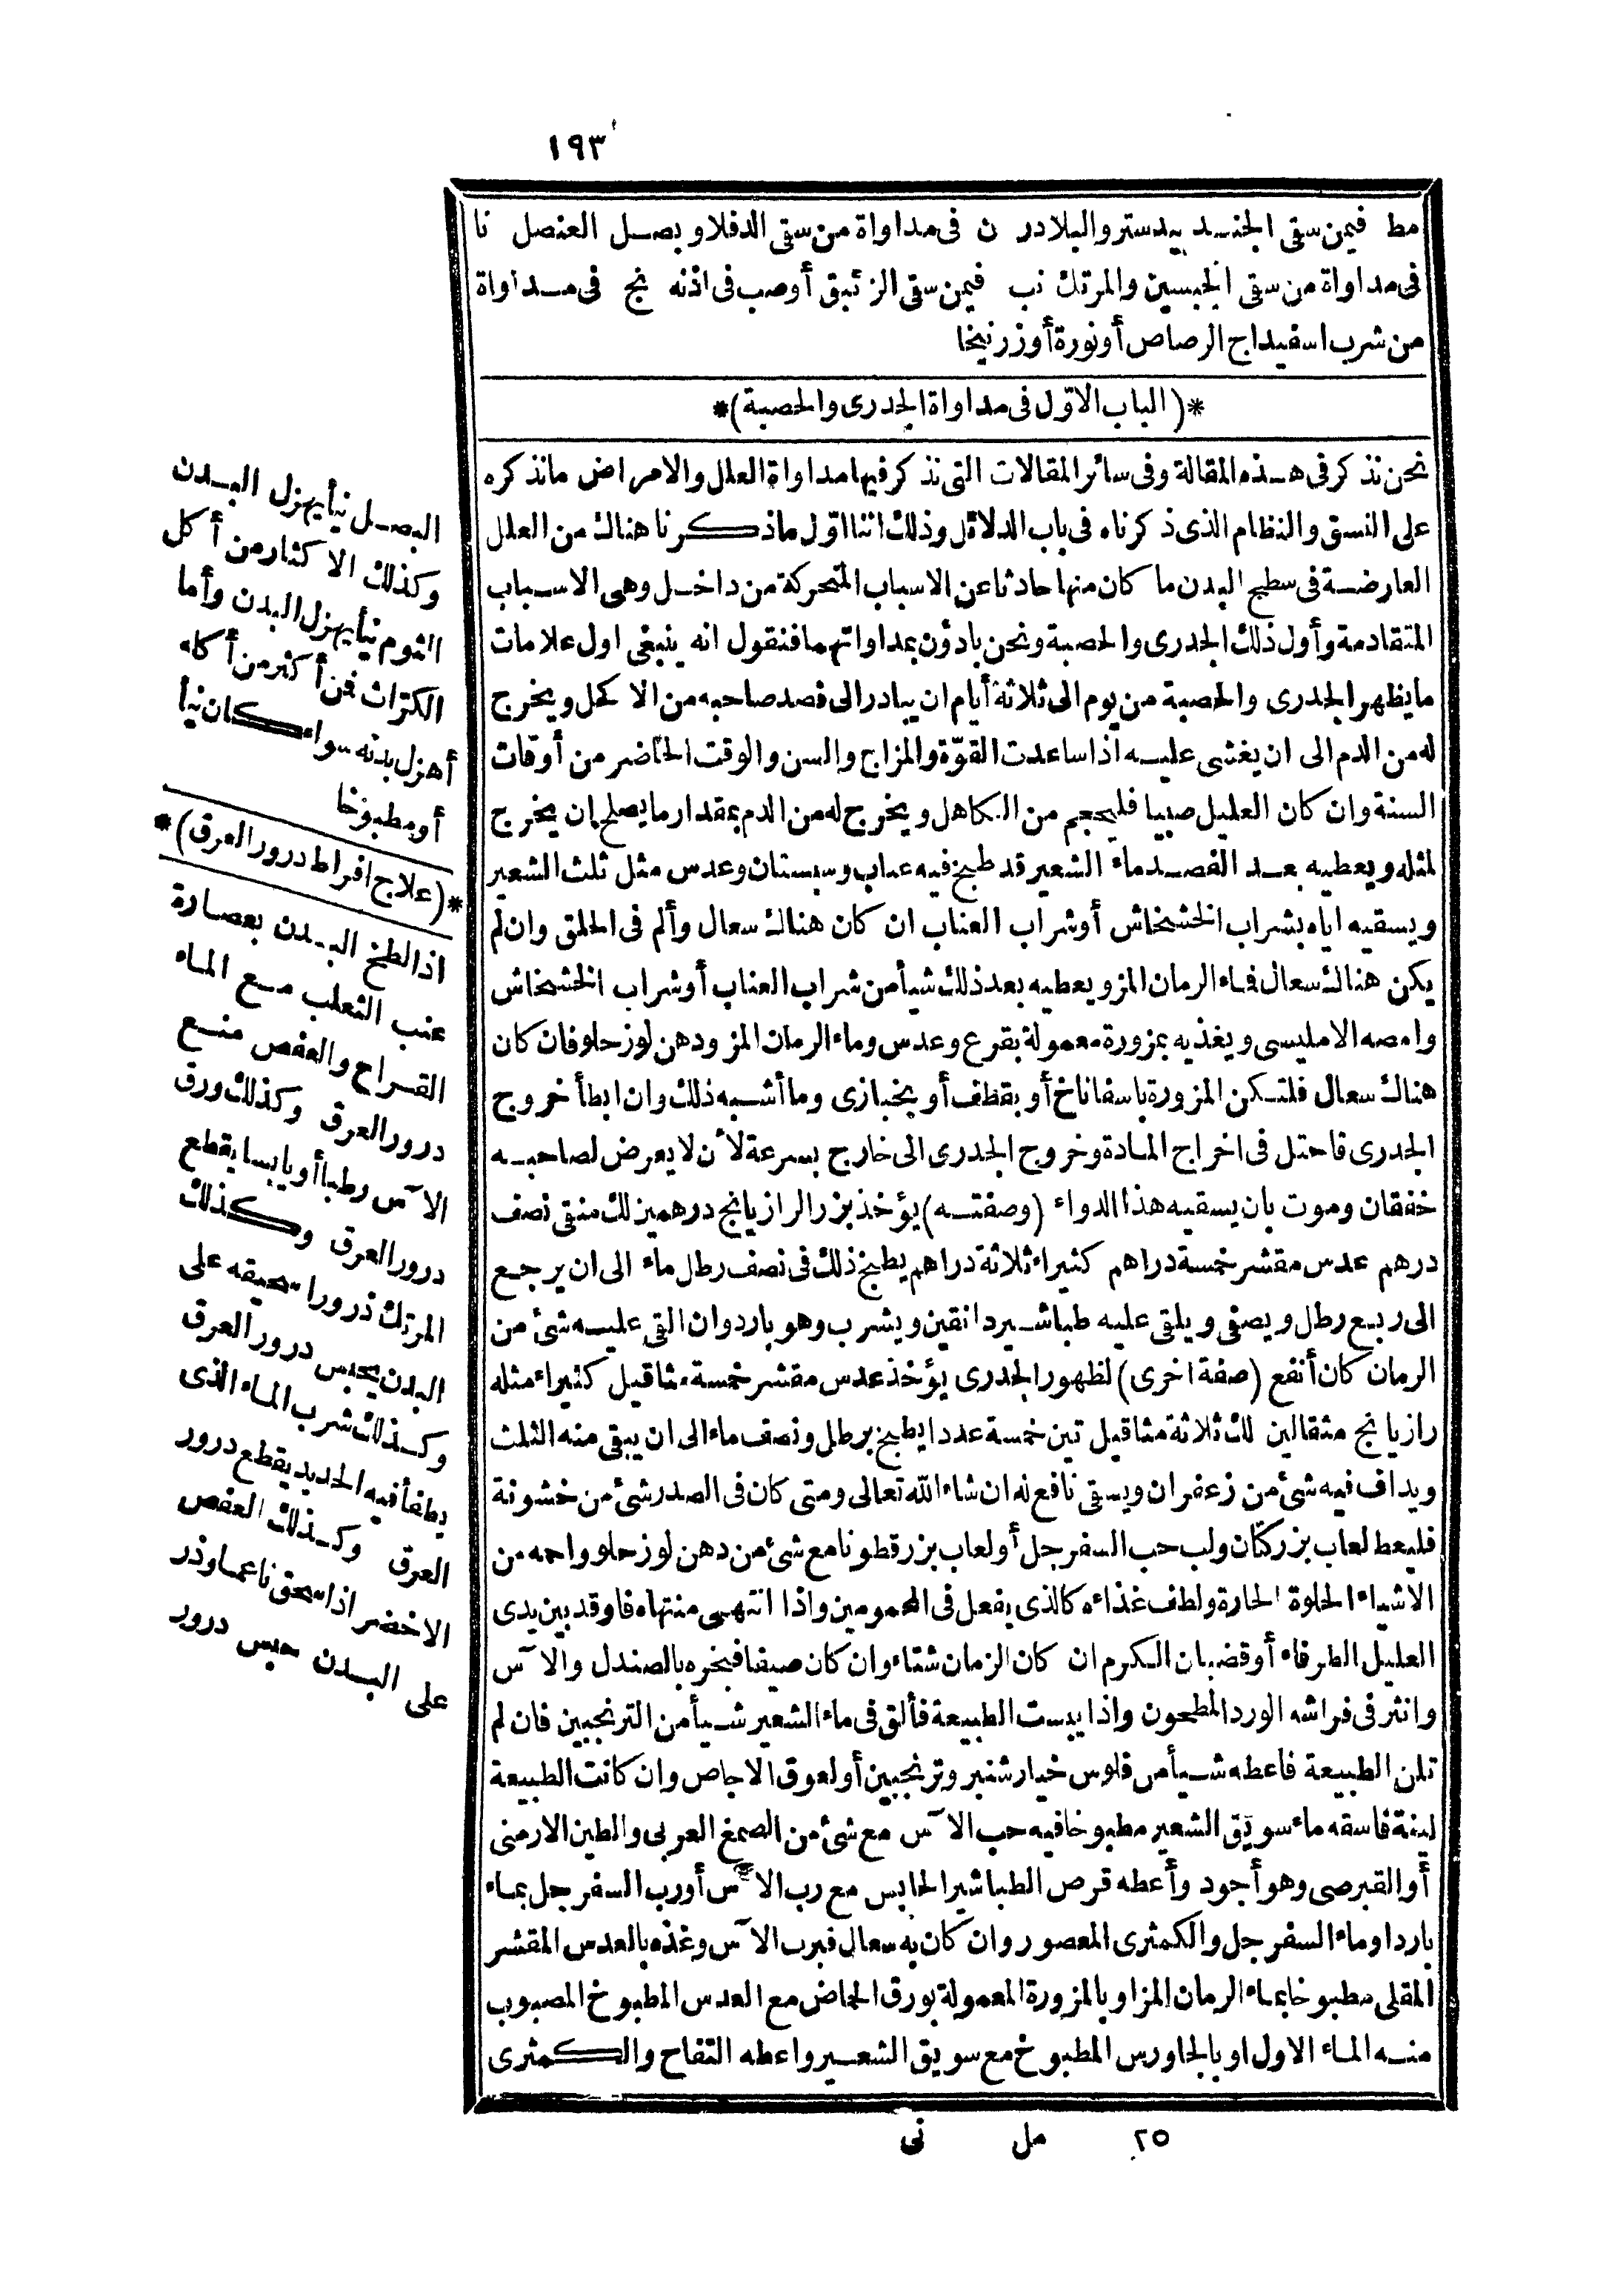 ١٩٣
مط فيمن سقى الجند بيدستر والبلادر ن فى مداواة من سقى الدفلا وبصل العنصل نا
فى مداواة من سقى الجبسين والمرتك نب فيمن سقى الزئبق أوصب فى اذنه نج فى مداواة
من شرب اسفيداج الرصاص أونورة أوزرنيخا
*(الباب الاوّل فى مداواة الجدرى والحصبة)*
نحن نذكر فى هذه المقالة وفى سائر المقالات التى نذكر فيها مداواة العلل والامراض مانذكره
على النسق والنظام الذى ذكرناه فى باب الدلائل وذلك اننا اوّل ماذكرنا هناك من العلل
العارضة فى سطح البدن ما كان منها حادثا عن الاسباب المتحركة من داخل وهى الاسباب
المتقادمة وأول ذلك الجدرى والحصبة ونحن بادؤن بمداواتهما فنقول انه ينبغى اول علامات
مايظهر الجدرى والحصبة من يوم الى ثلاثة أيام ان يبادر الى فصد صاحبه من الاكحل ويخرج
له من الدم الى ان يغشى عليه اذا ساعدت القوّة والمزاج والسن والوقت الحاضر من أوقات
السنة وان كان العليل صبيا فليحجم من الكاهل ويخرج له من الدم بمقدار ما يصلح ان يخرج
لمثله ويعطيه بعد الفصد ماء الشعير قد طبخ فيه عناب وسبستان وعدس مثل ثلث الشعير
ويسقيه اياه بشراب الخشخاش أوشراب العناب ان كان هناك سعال وألم فى الحلق وان لم
يكن هناك سعال فماء الرمان المز ويعطيه بعد ذلك شيأ من شراب العناب أوشراب الخشخاش
وامصه الامليسى ويغذيه بمزورة معمولة بقرع وعدس وماء الرمان المز ودهن لوز حلو فان كان
هناك سعال فلتكن المزورة باسفاناخ أو بقطف أو بخبازى وما أشبه ذلك وان ابطأ خروج
الجدرى فاحتل فى اخراج المادة وخروج الجدرى الى خارج بسرعة لأن لا يعرض لصاحبه
خفقان وموت بان يسقيه هذا الدواء (وصفته) يؤخذ بزر الرازيانج درهمين لك منقى نصف
درهم عدس مقشر خمسة دراهم كثيراء ثلاثة دراهم يطبخ ذلك فى نصف رطل ماء الى ان يرجع
الى ربع رطل ويصفى ويلقى عليه طباشير دانقين ويشرب وهو بارد وان القى عليه شئ من
الرمان كان أنفع (صفة اخرى) لظهور الجدرى يؤخذ عدس مقشر خمسة مثاقيل كثيراء مثله
رازيانج مثقالين لك ثلاثة مثاقيل تين خمسة عددا يطبخ برطل ونصف ماء الى ان يبقى منه الثلث
ويداف فيه شئ من زعفران ويسقى نافع له ان شاء الله تعالى ومتى كان فى الصدر شئ من خشونة
فليعط لعاب بزركتان ولب حب السفرجل أولعاب بزرقطونا مع شئ من دهن لوز حلو واحمه من
الاشياء الحلوة الحارة ولطف غذاءه كالذى يفعل فى المحمومين واذا انتهى منتهاه فاوقد بين يدى
العليل الطرفاء أوقضبان الكرم ان كان الزمان شتاء وان كان صيفا فبخره بالصندل والآس
وانثر فى فراشه الورد المطحون واذا يبست الطبيعة فألق فى ماء الشعير شيأ من الترنجبين فان لم
تلن الطبيعة فاعطه شيأ من فلوس خيارشنبر وترنجبين أولعوق الاجاص وان كانت الطبيعة
لينة فاسقه ماء سويق الشعير مطبوخا فيه حب الآس مع شئ من الصمغ العربى والطين الارمنى
أوالقبرصى وهو أجود وأعطه قرص الطباشير الحابس مع رب الآس أورب السفرجل بماء
بارد اوماء السفرجل والكمثرى المعصور وان كان به سعال فبرب الآس وغذه بالعدس المقشر
المقلى مطبوخا بماء الرمان المز او بالمزورة المعمولة بورق الحاض مع العدس المطبوخ المصبوب
منه الماء الاول او بالجاورس المطبوخ مع سويق الشعير واعطه التفاح والكمثرى
البصل نيأ يهزل البدن
وكذلك الاكثار من أكل
الثوم نيأ يهزل البدن وأما
الكرّاث فمن أكثر من أكله
أهزل بدنه سواء كان نيأ
أو مطبوخا
*(علاج افراط درور العرق)*
اذا لطخ البدن بعصارة
عنب الثعلب مع الماء
القراح والعفص منع
درور العرق وكذلك ورق
الآس رطبا أو يابسا يقطع
درور العرق وكذلك
المرتك ذرورا سحيقه على
البدن يحبس درور العرق
وكذلك شرب الماء الذى
يطفأ فيه الحديد يقطع درور
العرق وكذلك العفص
الاخضر اذا سحق ناعما وذر
على البدن حبس درور
٢٥ مل نى